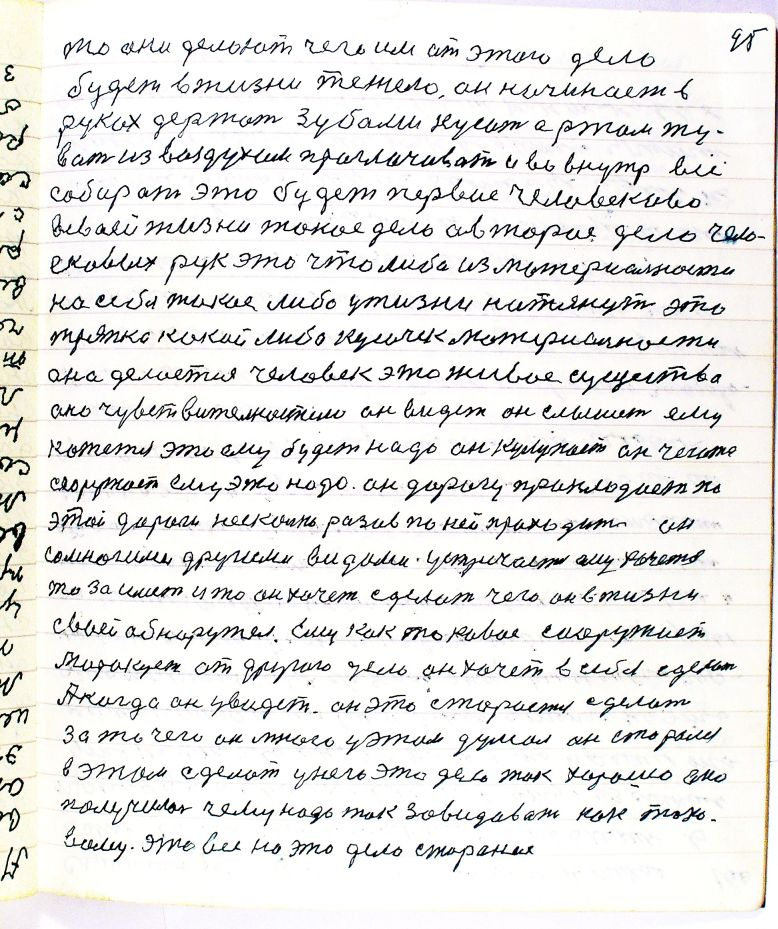 95
то они делают чего им от этого дело
будет в жизни тежело, он начинает в
руках держат зубами кусат а ртом жу-
ват из воздухом проглачиват и во внутр всё
собират это будет первые человеково
в своей жизни такое дело а второе дело чело-
ековых рук это что либо из материалности
на себя такое либо у жизни натянут это
тряпка какой либо кусочек материалности
она делается человек это живое существо
оно чувствителностию он видет он слышет ему
кажется это ему будет надо он он чегото
сооружает ему это надо. он дорогу прокладает по
этой дороги несколко разов по ней проходит он
со многими другими видоми. устречает ему хочется
то за имет и то он хочет сделат чего он в жизни
своей обнаружел. Ему как таковое сооружает
от другого дело он хочет в себя сделат
А когда он увидет. он это старается сделат
за то чего он много у этом думал он старался
в этом сделат у него это дело так харошо оно
получилос чему надо так завидоват как тако-
вому. это все на это дело старания